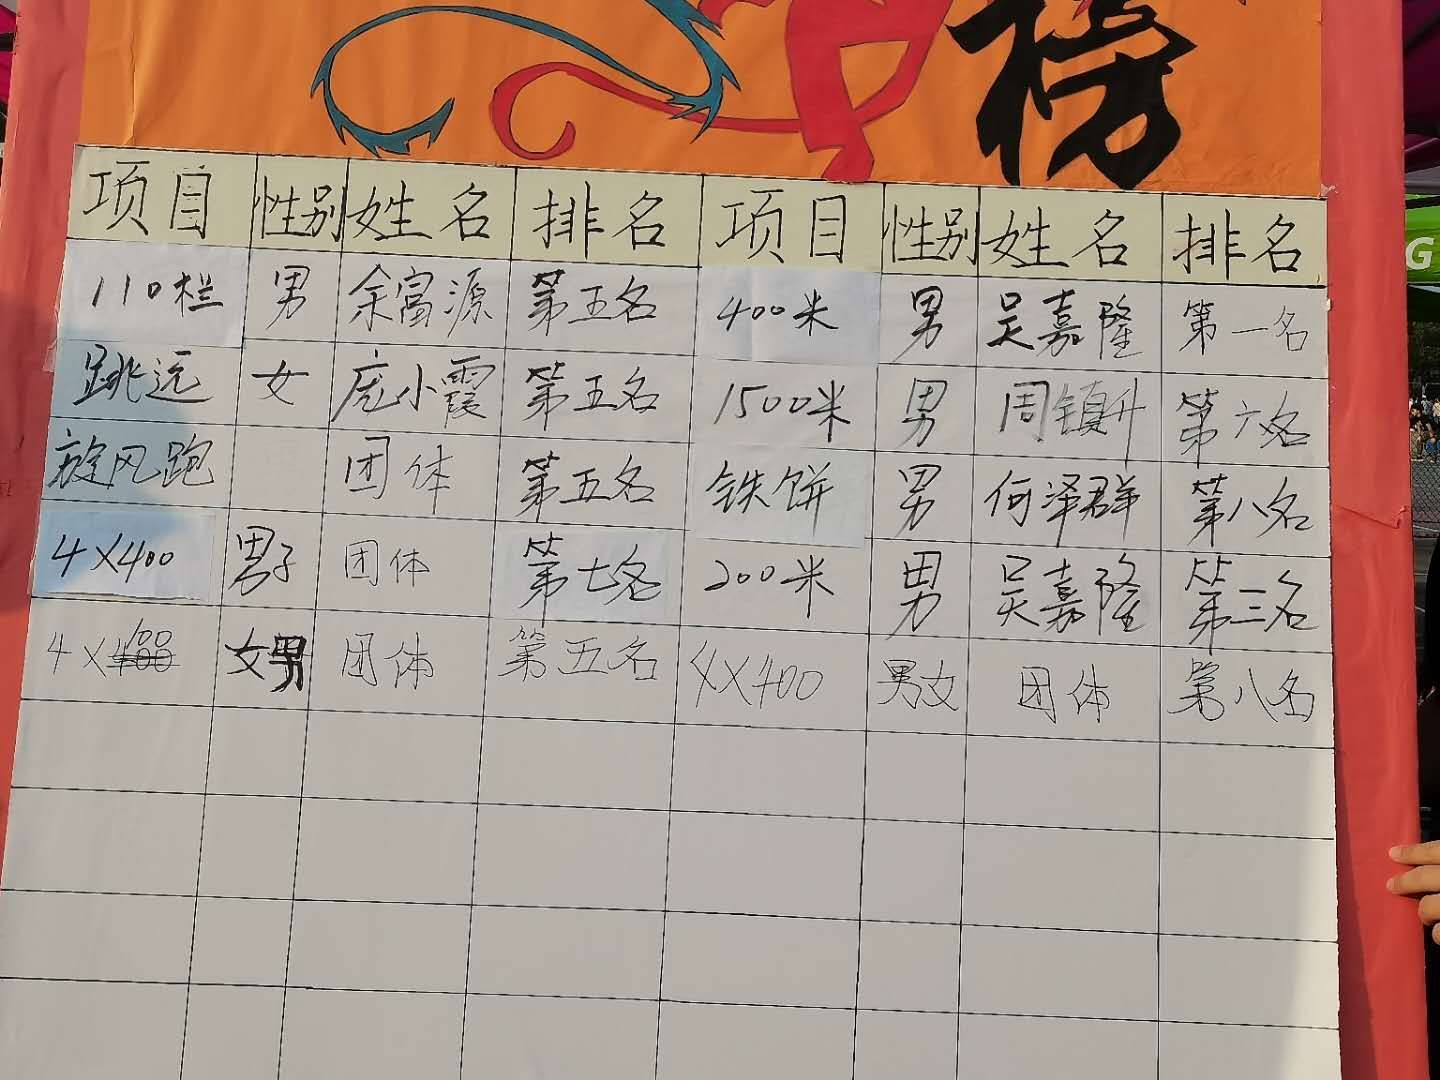 榜
项目 性别 姓名 排名 项目 性别 姓名 排名
110栏 男 余富源 第五名 400米 男 吴嘉隆 第一名
跳远 女 庞小霞 第五名 1500米 男 周镇升 第六名
旋风跑 团体 第五名 铁饼 男 何泽群 第八名
4×400 男子 团体 第七名 200米 男 吴嘉隆 第三名
4×100 女男 团体 第五名 4×400 男女 团体 第八名
G